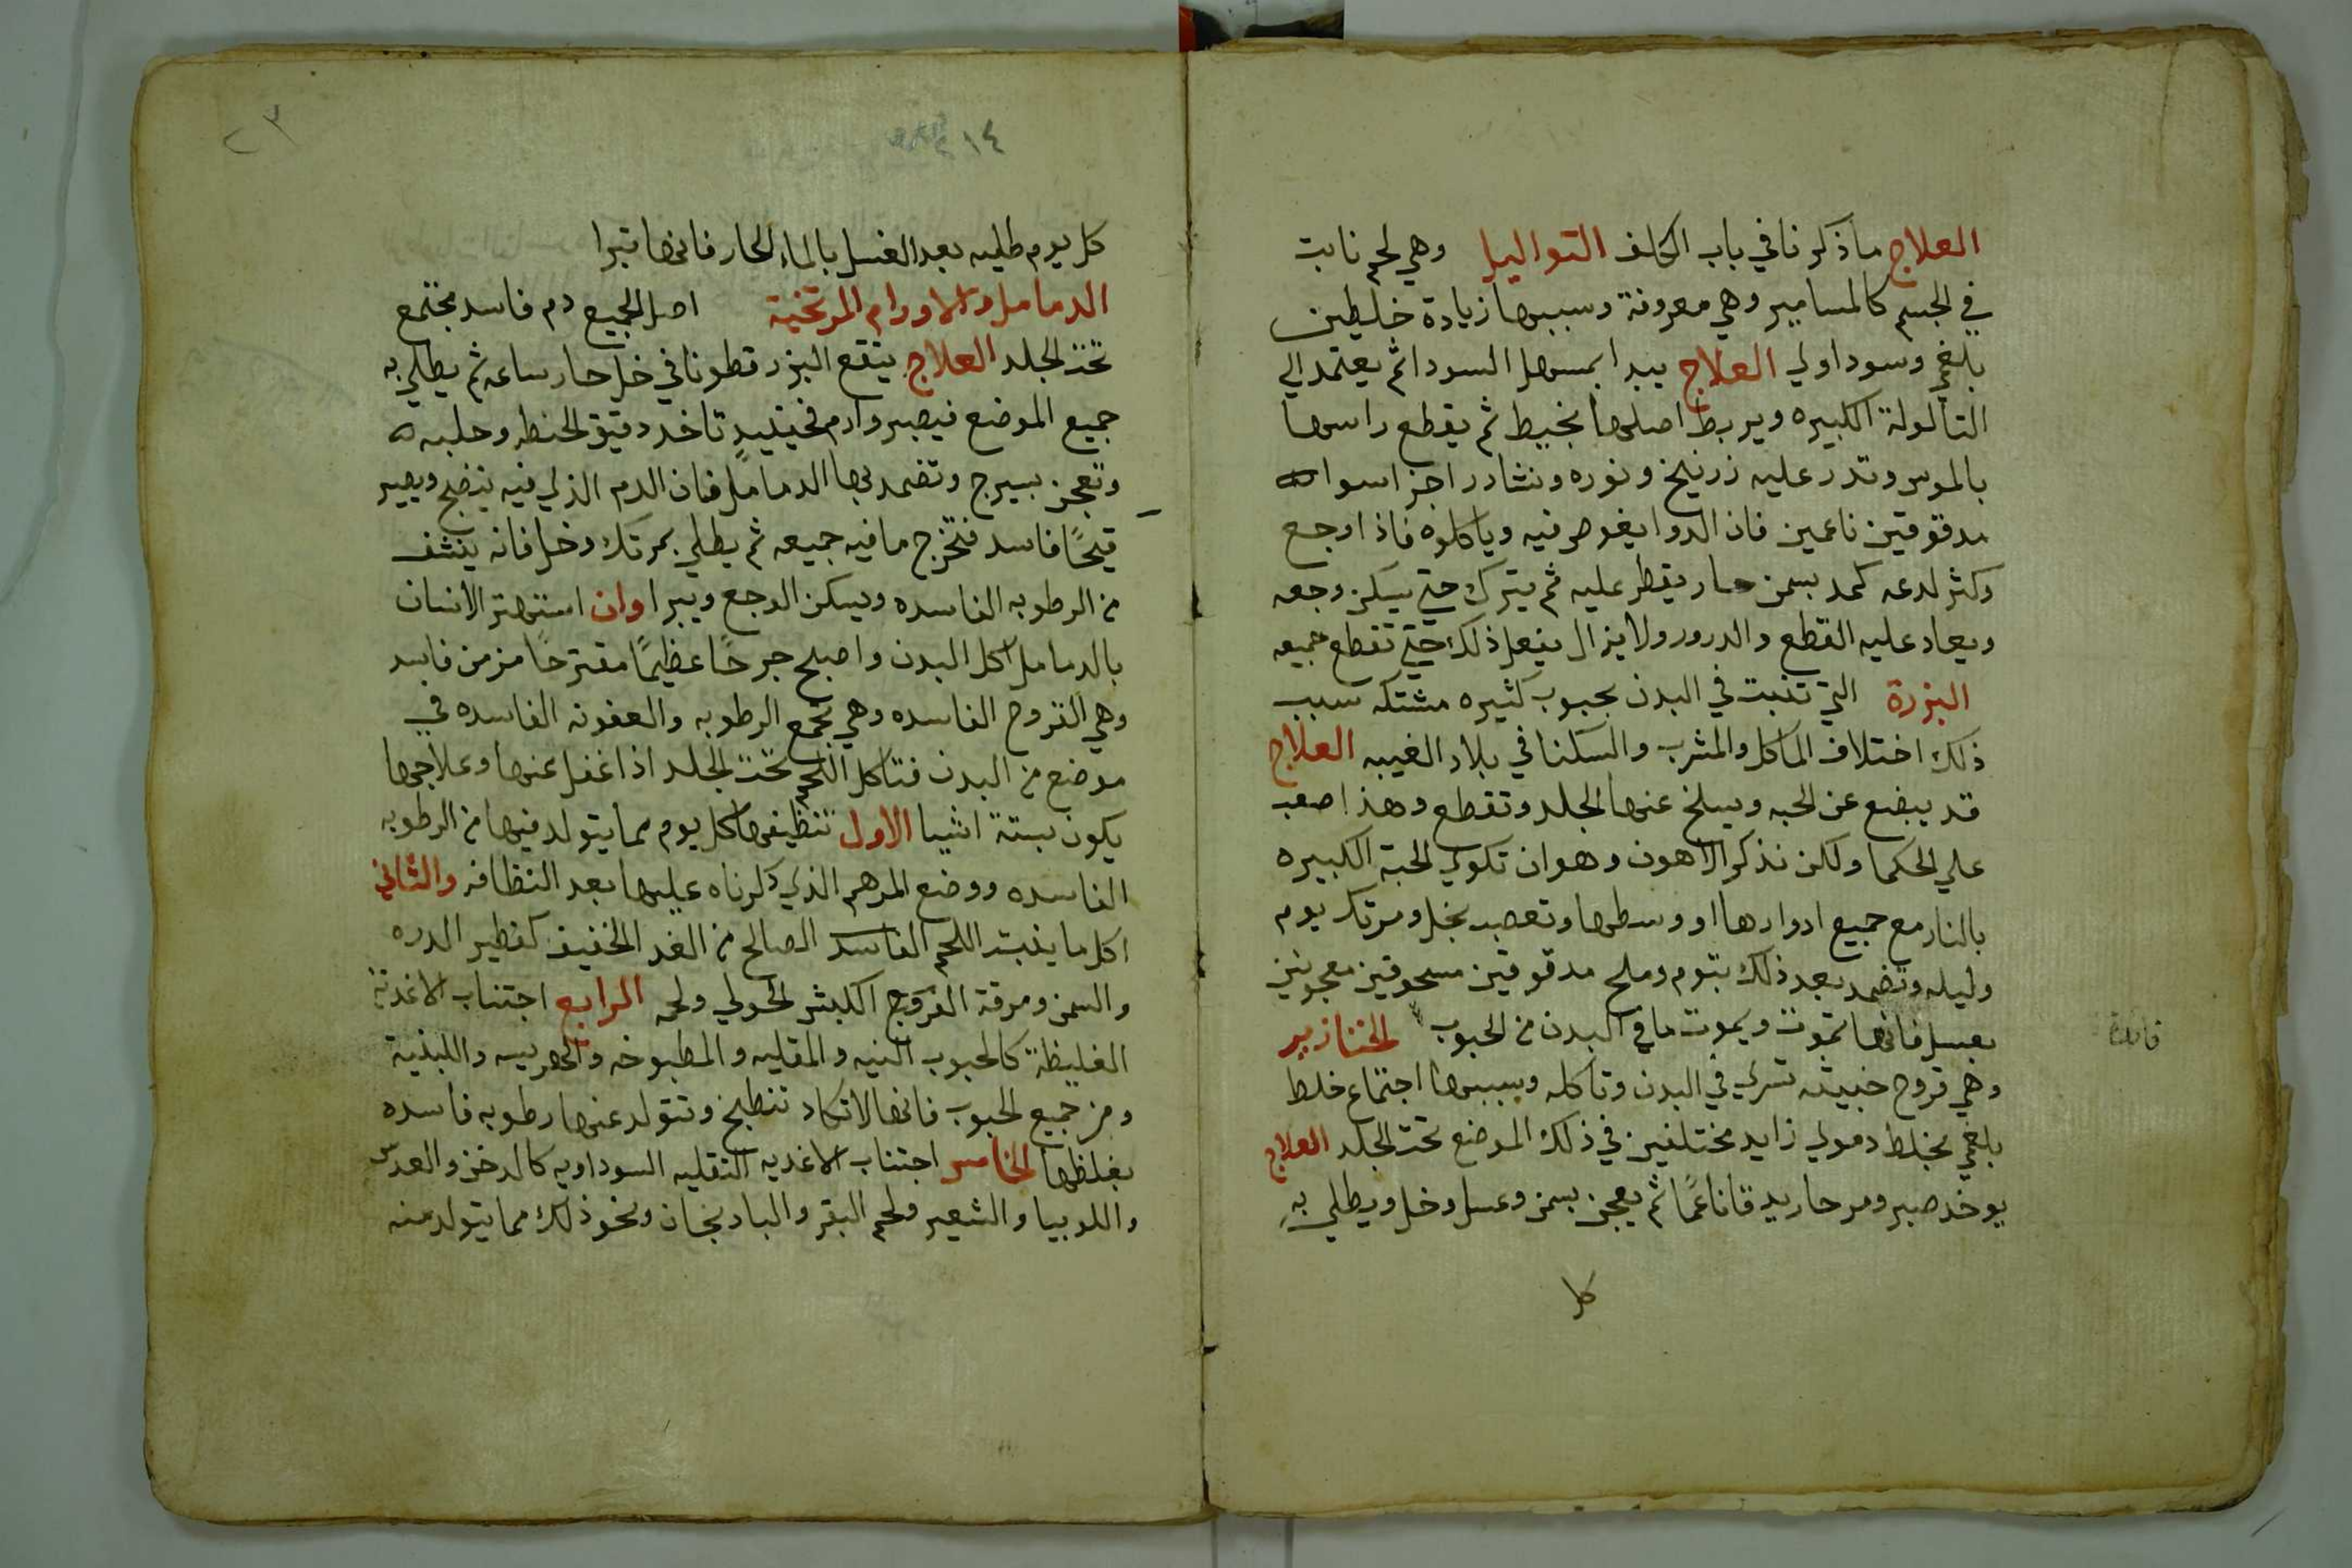 العلاج ماذكرنا في باب الكلف التواليل وهي لحم نابت
في الجسم كالمسامير وهي معروفة وسببها زيادة خلطين
بلغمي وسوداوي العلاج يبدا بمسهل السودا ثم يعتمد الي
التالولة الكبيره ويربط اصلها بخيط ثم يقطع راسها
بالموس وتدر عليه زرنيخ ونوره ونشادر اجزا سوا
مدقوقين ناعمين فان الدوا يغوص فيه وياكلوه فاذا وجع
وكثر لدعه كمد بسمن حار يقطر عليه ثم يترك حتي يسكن وجعه
ويعاد عليه القطع والدرور ولا يزال يفعل ذلك حتي تقطع جميعه
البزرة التي تنبت في البدن بحبوب كثيره مشتكه سبب
ذلك اختلاف الماكل والمشرب والسكنا في بلاد الغيبه العلاج
قد يبضع عن الحبه ويسلخ عنها الجلد وتقطع وهذا صعب
علي الحكما ولكن نذكر الاهون وهو ان تكوي الحبة الكبيره
بالنار مع جميع ادوارها او وسطها وتعصب بخل ومرتك يوم
وليله وتضمد بعد ذلك بتوم وملح مدقوقين مسحوقين معجونين
بعسل فانها تموت ويموت ما في البدن من الحبوب الخنازير
فائدة
وهي قروح خبيثه تسري في البدن وتاكله وسببها اجتماع خلط
بلغمي بخلط دموي زايد مختلفين في ذلك الموضع تحت الجلد العلاج
يوخد صبر ومر حار يدق ناعمًا ثم يعجن بسمن وعسل وخل ويطلي به
كل
٢٣
٤١٤
كل يوم طليه بعد الغسل بالماء الحار فانها تبرا
الدمامل والاورام المرتخية اصل الجميع دم فاسد مجتمع
تحت الجلد العلاج ينقع البزر قطونا في خل حار ساعه ثم يطلي به
جميع الموضع فيصير وارم فحينيدٍ تاخد دقيق الحنطه وحلبه
وتعجن بسيرج وتضمد بها الدمامل فان الدم الذي فيه ينضج ويصير
قيحًا فاسد فتخرج ما فيه جميعه ثم يطلي بمرتك وخل فانه ينشف
من الرطوبه الفاسده ويسكن الوجع ويبرا وان استهتر الانسان
بالدمامل اكل البدن واصبح جرحًا عظيمًا مقترحًا مزمن فاسد
وهي القروح الفاسده وهي تجمع الرطوبه والعفونه الفاسده في
موضع من البدن فتاكل اللحم تحت الجلد اذا غفل عنها وعلاجها
يكون بستة اشيا الاول تنظيفها كل يوم مما يتولد فيها من الرطوبه
الفاسده ووضع المرهم الذي ذكرناه عليها بعد النظافه والثاني
اكل ما ينبت اللحم الفاسد الصالح من الغدا الخفيف كفطير الدره
والسمن ومرقة الفروج الكبش الحولي ولحمه الرابع اجتناب الاغدية
الغليظة كالحبوب النيه والمقليه والمطبوخه والهريسه واللبنية
ومن جميع الحبوب فانها لا تكاد تنطبخ وتتولد عنها رطوبه فاسده
بغلظها الخامس اجتناب الاغديه الثقليه السوداويه كالدخن والعدس
واللوبيا والشعير ولحم البقر والبادنجان ونحو ذلك مما يتولد منه